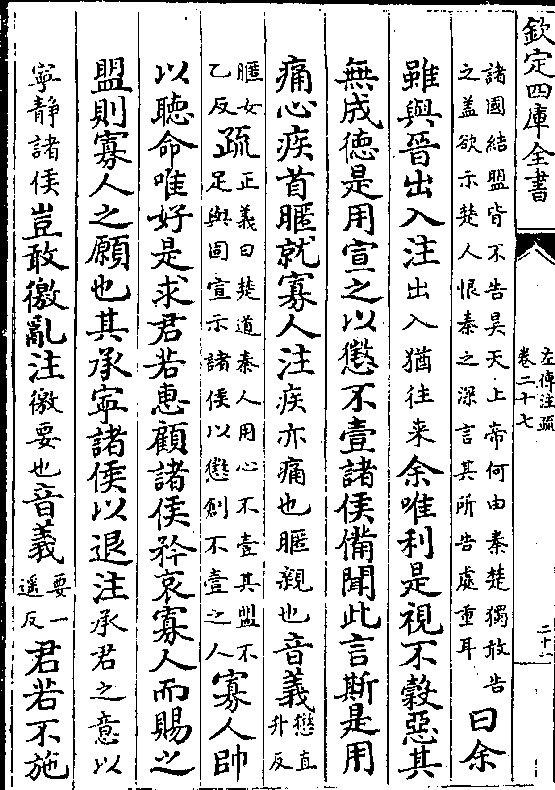 欽定四庫全書
左傳注疏
卷二十七
諸國結盟皆不告昊天上帝何由秦楚獨敢告
之盖欲示楚人恨秦之深言其所告虚重耳
曰余
雖與晉出入注出入猶往来余唯利是視不榖惡其
無成德是用宣之以懲不壹諸侯備聞此言斯是用
痛心疾首暱就寡人注疾亦痛也暱親也音義懲直升反
暱女乙反疏正義曰楚道秦人用心不壹其盟不
足與固宣示諸侯以懲創不壹之人寡人帥
以聽命唯好是求君若惠顧諸侯矜哀寡人而賜之
盟則寡人之願也其承寜諸侯以退注承君之意以
寜静諸侯豈敢徼亂注徼要也音義要一遥反君若不施